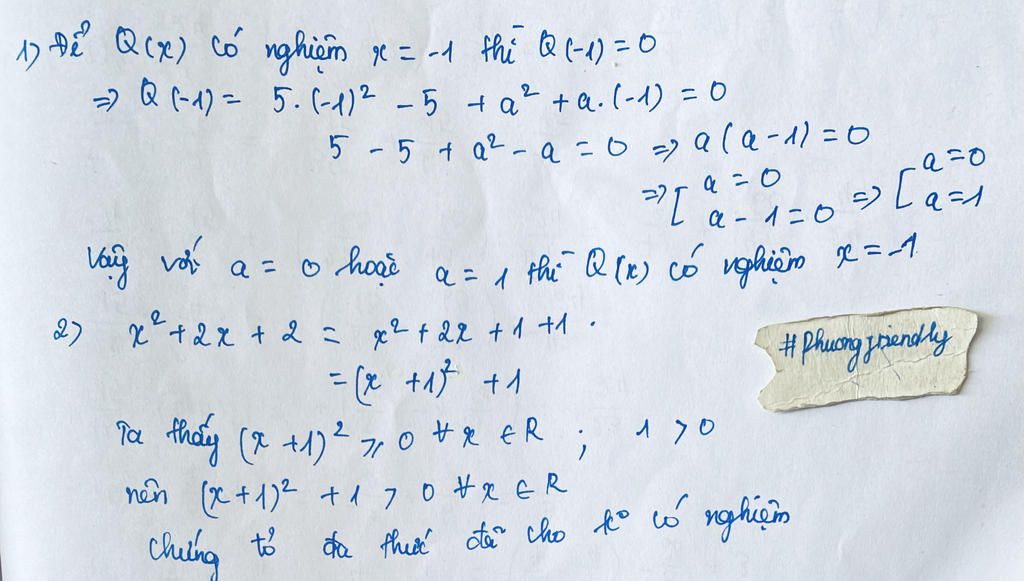 1) Để Q(x) có nghiệm x = -1 thì Q(-1) = 0
=> Q(-1) = 5.(-1)² - 5 + a² + a.(-1) = 0
5 - 5 + a² - a = 0 => a(a-1) = 0
=> [ a = 0 => [ a=0
a - 1 = 0 a=1
Vậy với a = 0 hoặc a = 1 thì Q(x) có nghiệm x = -1
2) x² + 2x + 2 = x² + 2x + 1 + 1.
= (x + 1)² + 1
#Phuongfriendly
Ta thấy (x + 1)² ⩾ 0 ∀ x ∈ R ; 1 > 0
nên (x+1)² + 1 > 0 ∀ x ∈ R
chứng tỏ đa thức đã cho k° có nghiệm